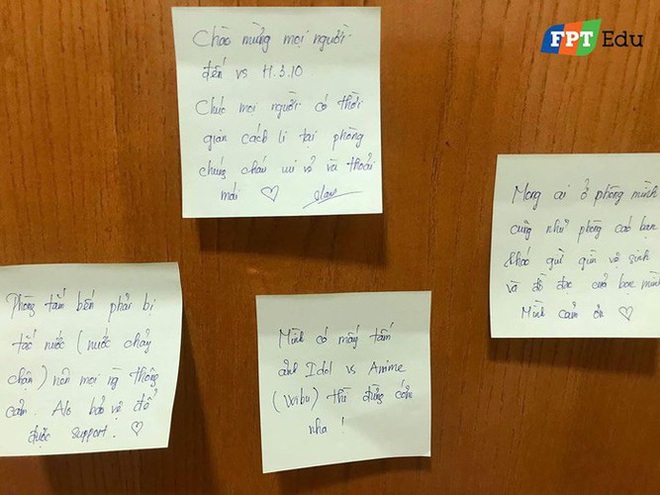 FPT Edu
Chào mừng mọi người
đến vs H.3.10.
Chúc mọi người có thời
gian cách li tại phòng
chúng cháu vui vẻ và thoải
mái ♡
Mong ai ở phòng mình
cũng như phòng các bạn
khác giữ gìn vệ sinh
và đồ đạc của bọn mình
Mình cảm ơn ♡
Phòng tắm bên phải bị
tắc nước (nước chảy
chậm) nên mọi ng thông
cảm. Alo bảo vệ để
được support. ♡
Mình có mấy tấm
ảnh Idol vs Anime
(Wibu) thì đừng cười
nha !